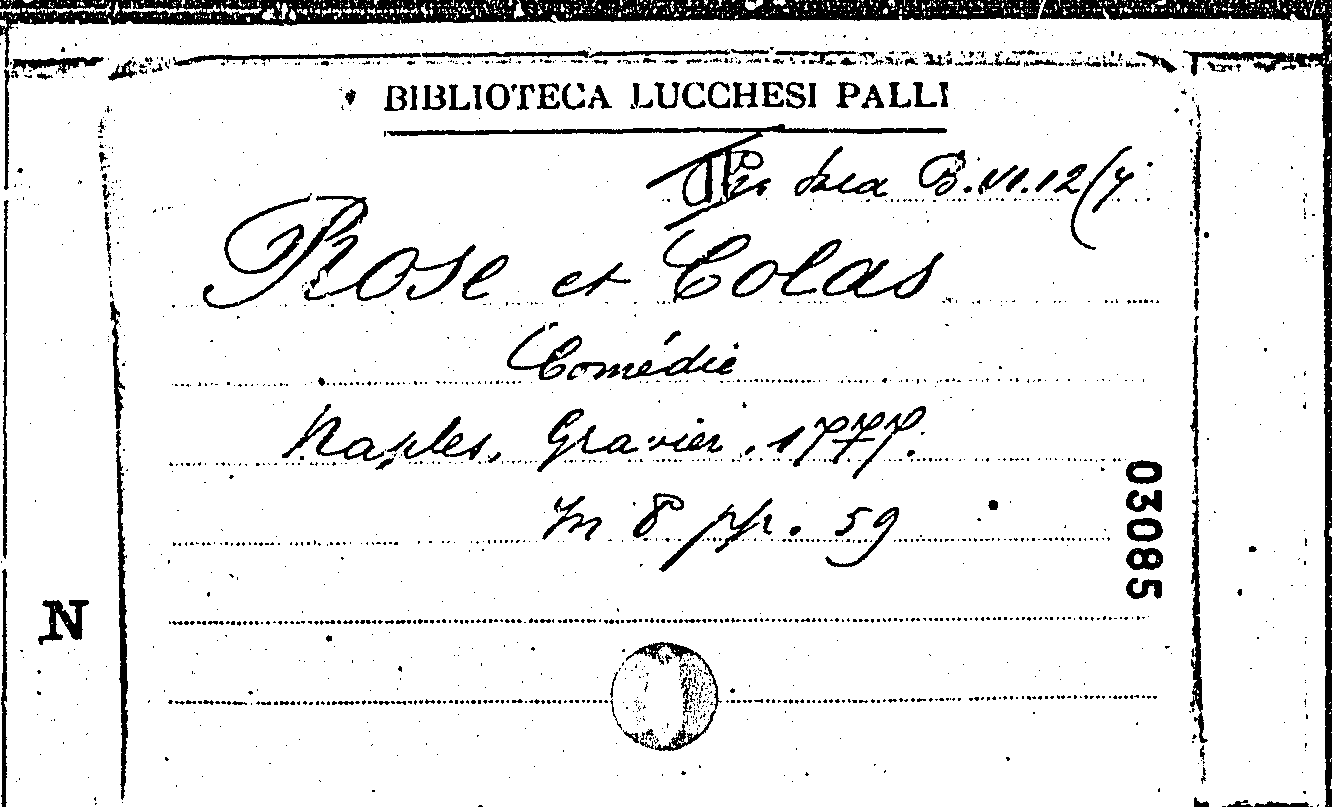 BIBLIOTECA LUCCHESI PALLI
B. VI. 12 (4
Rose et Colas
Comédie
Naples, Gravier, 1777.
In 8 pp. 59
03085
N